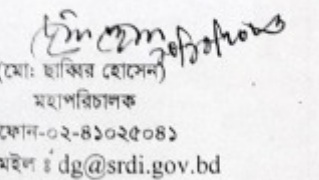 (মো: ছাব্বির হোসেন)
মহাপরিচালক
ফোন-০২-৪১০২৫০৪১
মইল ঃ dg@srdi.gov.bd